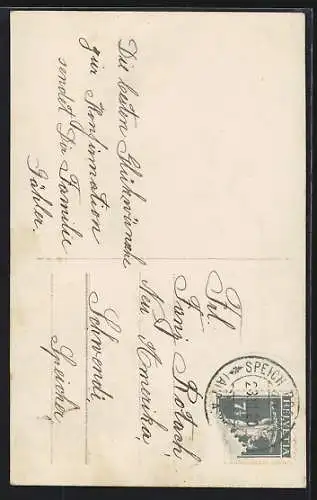 Die besten Glükwünsche
zur Konfirmation
sendet Dir Familie
Gähler.
Frl.
Fanz Rotach
Neu Amerika,
Schwendi,
Speicher
SPEICH
HELVETIA
7½